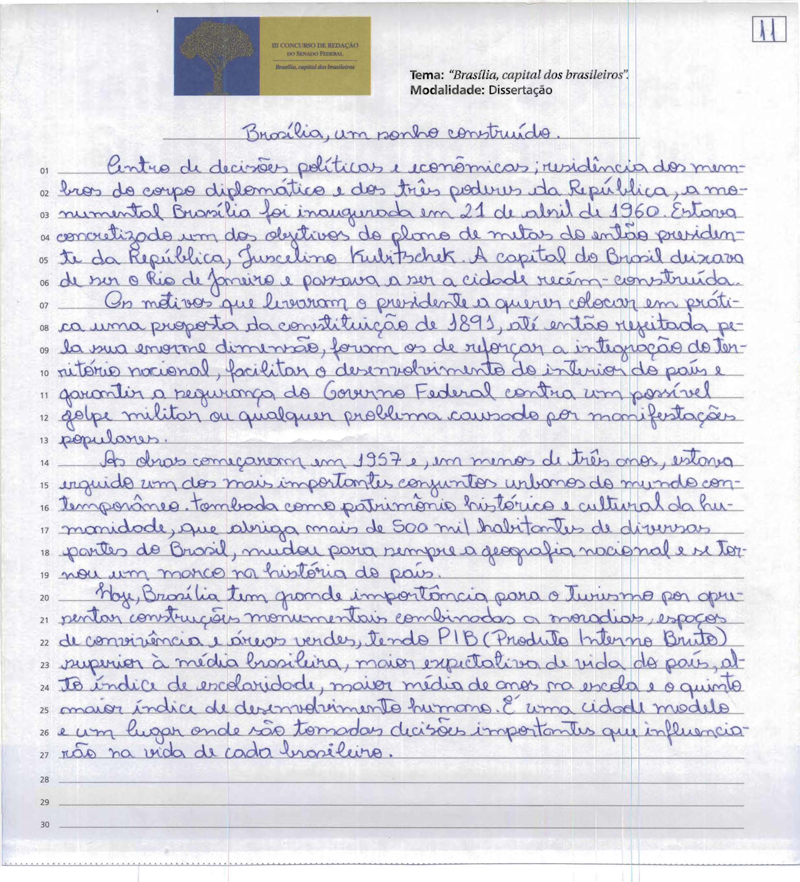 11
III CONCURSO DE REDAÇÃO
DO SENADO FEDERAL
Brasília, capital dos brasileiros
Tema: "Brasília, capital dos brasileiros".
Modalidade: Dissertação
Brasília, um sonho construído.
01 Centro de decisões políticas e econômicas; residência dos mem-
02 bros do corpo diplomático e dos três poderes da República, a mo-
03 numental Brasília foi inaugurada em 21 de abril de 1960. Estava
04 concretizado um dos objetivos do plano de metas do então presiden-
05 te da República, Juscelino Kubitschek. A capital do Brasil deixava
06 de ser o Rio de Janeiro e passava a ser a cidade recém-construída.
07 Os motivos que levaram o presidente a querer colocar em práti-
08 ca uma proposta da constituição de 1891, até então rejeitada pe-
09 la sua enorme dimensão, foram os de reforçar a integração do ter-
10 ritório nacional, facilitar o desenvolvimento do interior do país e
11 garantir a segurança do Governo Federal contra um possível
12 golpe militar ou qualquer problema causado por manifestações
13 populares.
14 As obras começaram em 1957 e, em menos de três anos, estava
15 erguido um dos mais importantes conjuntos urbanos do mundo con-
16 temporâneo. Tombada como patrimônio histórico e cultural da hu-
17 manidade, que abriga mais de 500 mil habitantes de diversas
18 partes do Brasil, mudou para sempre a geografia nacional e se tor-
19 nou um marco na história do país.
20 Hoje, Brasília tem grande importância para o turismo por apre-
21 sentar construções monumentais combinadas a moradias, espaços
22 de convivência e áreas verdes, tendo PIB (Produto Interno Bruto)
23 superior à média brasileira, maior expectativa de vida do país, al-
24 to índice de escolaridade, maior média de anos na escola e o quinto
25 maior índice de desenvolvimento humano. É uma cidade modelo
26 e um lugar onde são tomadas decisões importantes que influencia-
27 rão na vida de cada brasileiro.
28
29
30